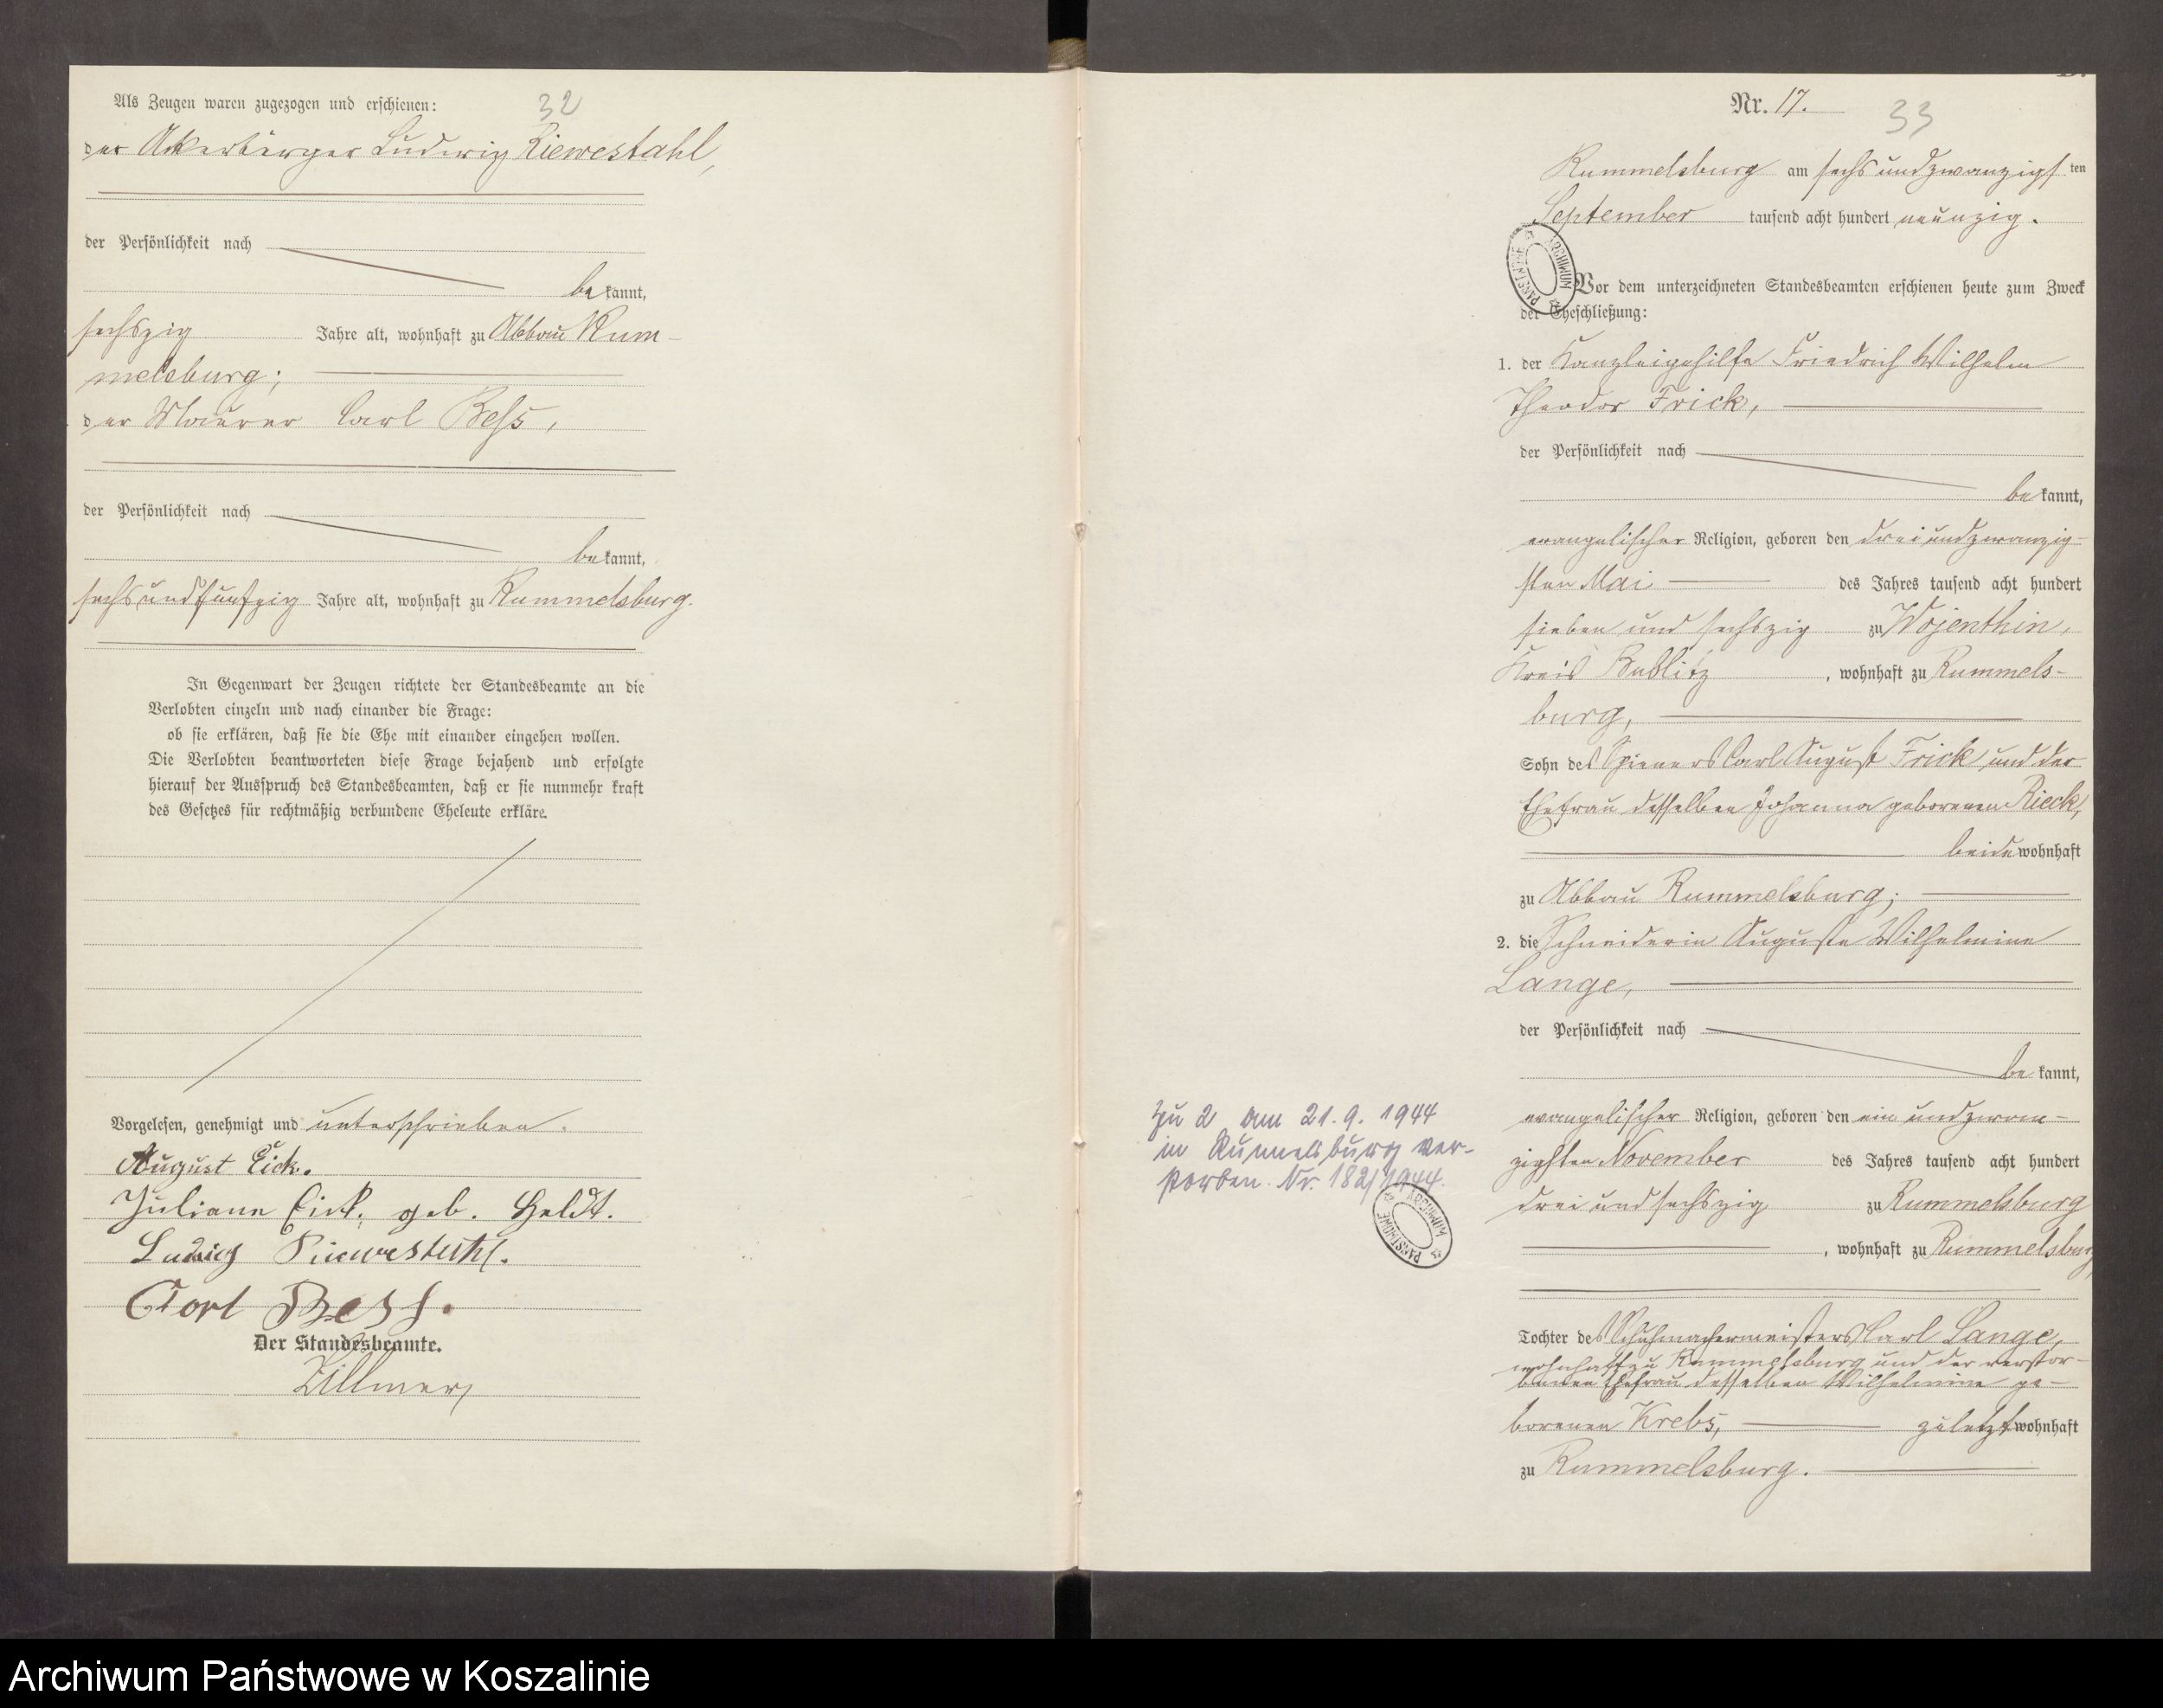 Als Zeugen waren zugezogen und erschienen:
32
der Ackerbürger Ludwig Riewestahl,
der Persönlichkeit nach
bekannt,
sechszig Jahre alt, wohnhaft zu Abbau Rum-
melsburg;
der Maurer Carl Bess,
der Persönlichkeit nach
bekannt,
sechsundfunfzig Jahre alt, wohnhaft zu Rummelsburg.
In Gegenwart der Zeugen richtete der Standesbeamte an die
Verlobten einzeln und nach einander die Frage:
ob sie erklären, daß sie die Ehe mit einander eingehen wollen.
Die Verlobten beantworteten diese Frage bejahend und erfolgte
hierauf der Ausspruch des Standesbeamten, daß er sie nunmehr kraft
des Gesetzes für rechtmäßig verbundene Eheleute erkläre.
Vorgelesen, genehmigt und unterschrieben.
August Eick.
Juliane Eick, geb. Heldt.
Ludwig Riewestahl.
Carl Bess.
Der Standesbeamte.
Zillmer
B.
Nr. 17.
33
Rummelsburg am sechsundzwanzigsten
September tausend acht hundert neunzig.
Vor dem unterzeichneten Standesbeamten erschienen heute zum Zweck
der Eheschließung:
1. der Kanzleigehilfe Friedrich Wilhelm
Theodor Frick,
der Persönlichkeit nach
bekannt,
evangelischer Religion, geboren den dreiundzwanzig-
sten Mai des Jahres tausend acht hundert
sieben und sechszig zu Wojenthin,
Kreis Bublitz, wohnhaft zu Rummels-
burg,
Sohn des Carl August Frick und der
Ehefrau desselben Johanna geborenen Rieck,
beide wohnhaft
zu Abbau Rummelsburg;
2. die Schneiderin Auguste Wilhelmine
Lange,
der Persönlichkeit nach
bekannt,
evangelischer Religion, geboren den ein und zwan-
zigsten November des Jahres tausend acht hundert
drei und sechszig zu Rummelsburg
, wohnhaft zu Rummelsburg,
Tochter des Schuhmachermeisters Carl Lange,
wohnhaft zu Rummelsburg und der verstor-
benen Ehefrau desselben Wilhelmine ge-
borenen Krebs, zuletzt wohnhaft
zu Rummelsburg.
Zu 2 am 21.9.1944
in Rummelsburg ver-
storben. Nr. 182/1944.
ARCHIWUM PAŃSTWOWE
ARCHIWUM PAŃSTWOWE
Archiwum Państwowe w Koszalinie